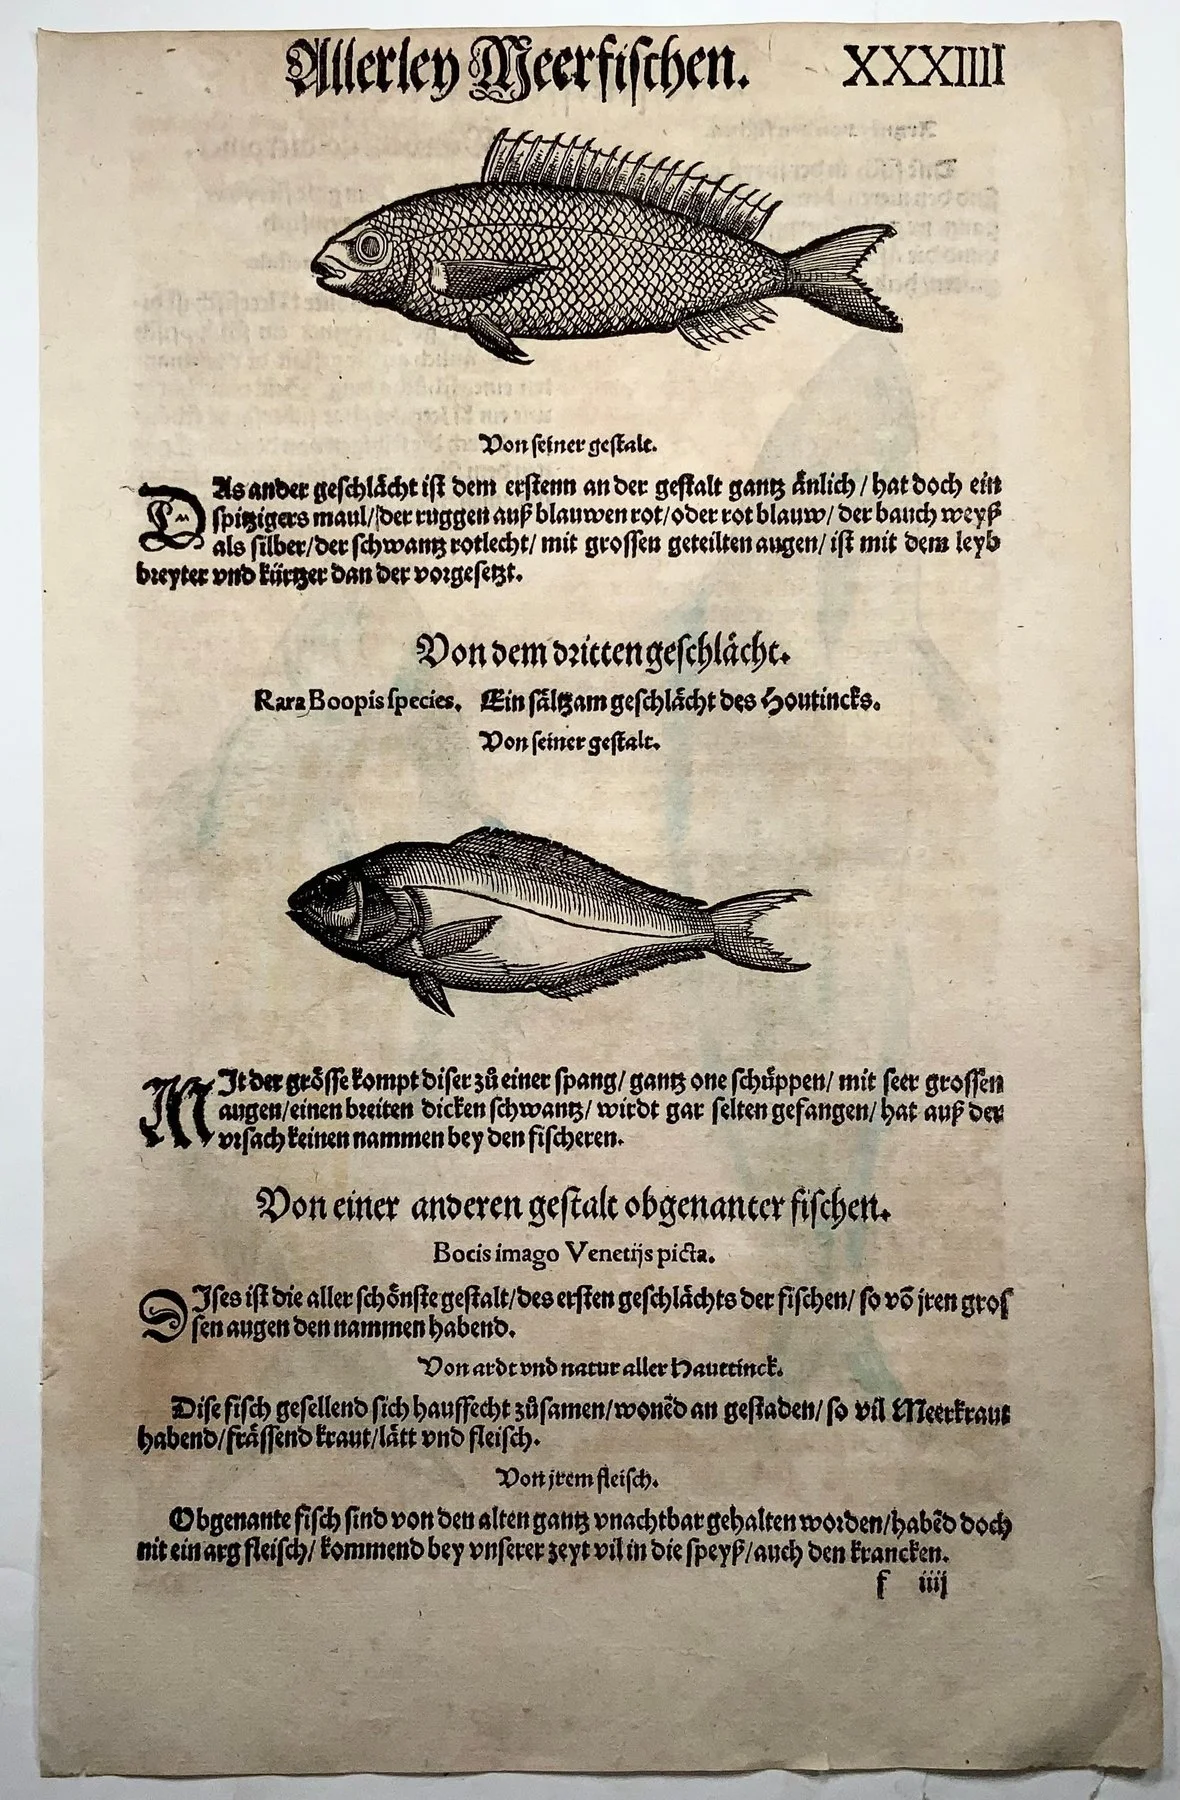 Allerley Meerfischen. XXXIIII
Von seiner gestalt.
DAs ander geschlächt ist dem erstenn an der gestalt gantz änlich / hat doch ein
spitzigers maul/ der ruggen auß blauwen rot/ oder rot blauw/ der bauch weyß
als silber/ der schwantz rotlecht/ mit grossen geteilten augen/ ist mit dem leyb
breyter vnd kürtzer dan der vorgesetzt.
Von dem dritten geschlächt.
Rara Boopis species. Ein sältzam geschlächt des Houtincks.
Von seiner gestalt.
MIt der grösse kompt diser zů einer spang/ gantz one schüppen/ mit seer grossen
augen/ einen breiten dicken schwantz/ wirdt gar selten gefangen/ hat auß der
vrsach keinen nammen bey den fischeren.
Von einer anderen gestalt obgenanter fischen.
Bocis imago Venetijs picta.
DIses ist die aller schönste gestalt/ des ersten geschlächts der fischen/ so vō jren gros
sen augen den nammen habend.
Von ardt vnd natur aller Hauttinck.
Dise fisch gesellend sich hauffecht zůsamen/ wonēd an gestaden/ so vil Meerkraut
habend/ frässend kraut/ lätt vnd fleisch.
Von jrem fleisch.
Obgenante fisch sind von den alten gantz vnachtbar gehalten worden/ habēd doch
nit ein arg fleisch/ kommend bey vnserer zeyt vil in die speyß/ auch den krancken.
f iiij